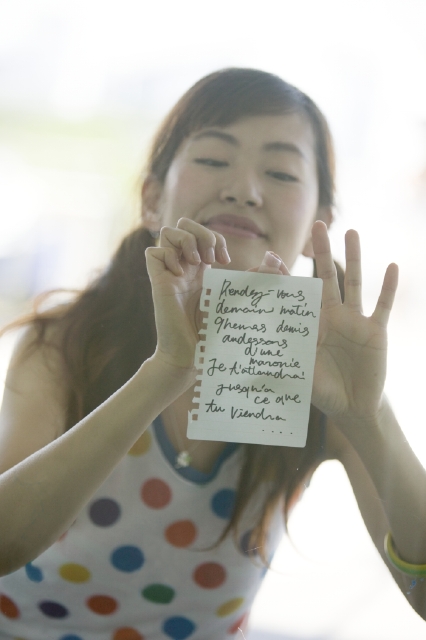 Rendez-vous
demain matin
9heures demis
audessons
d'une
maronie
Je t'attendrai
jusqu'a
ce que
tu viendra....